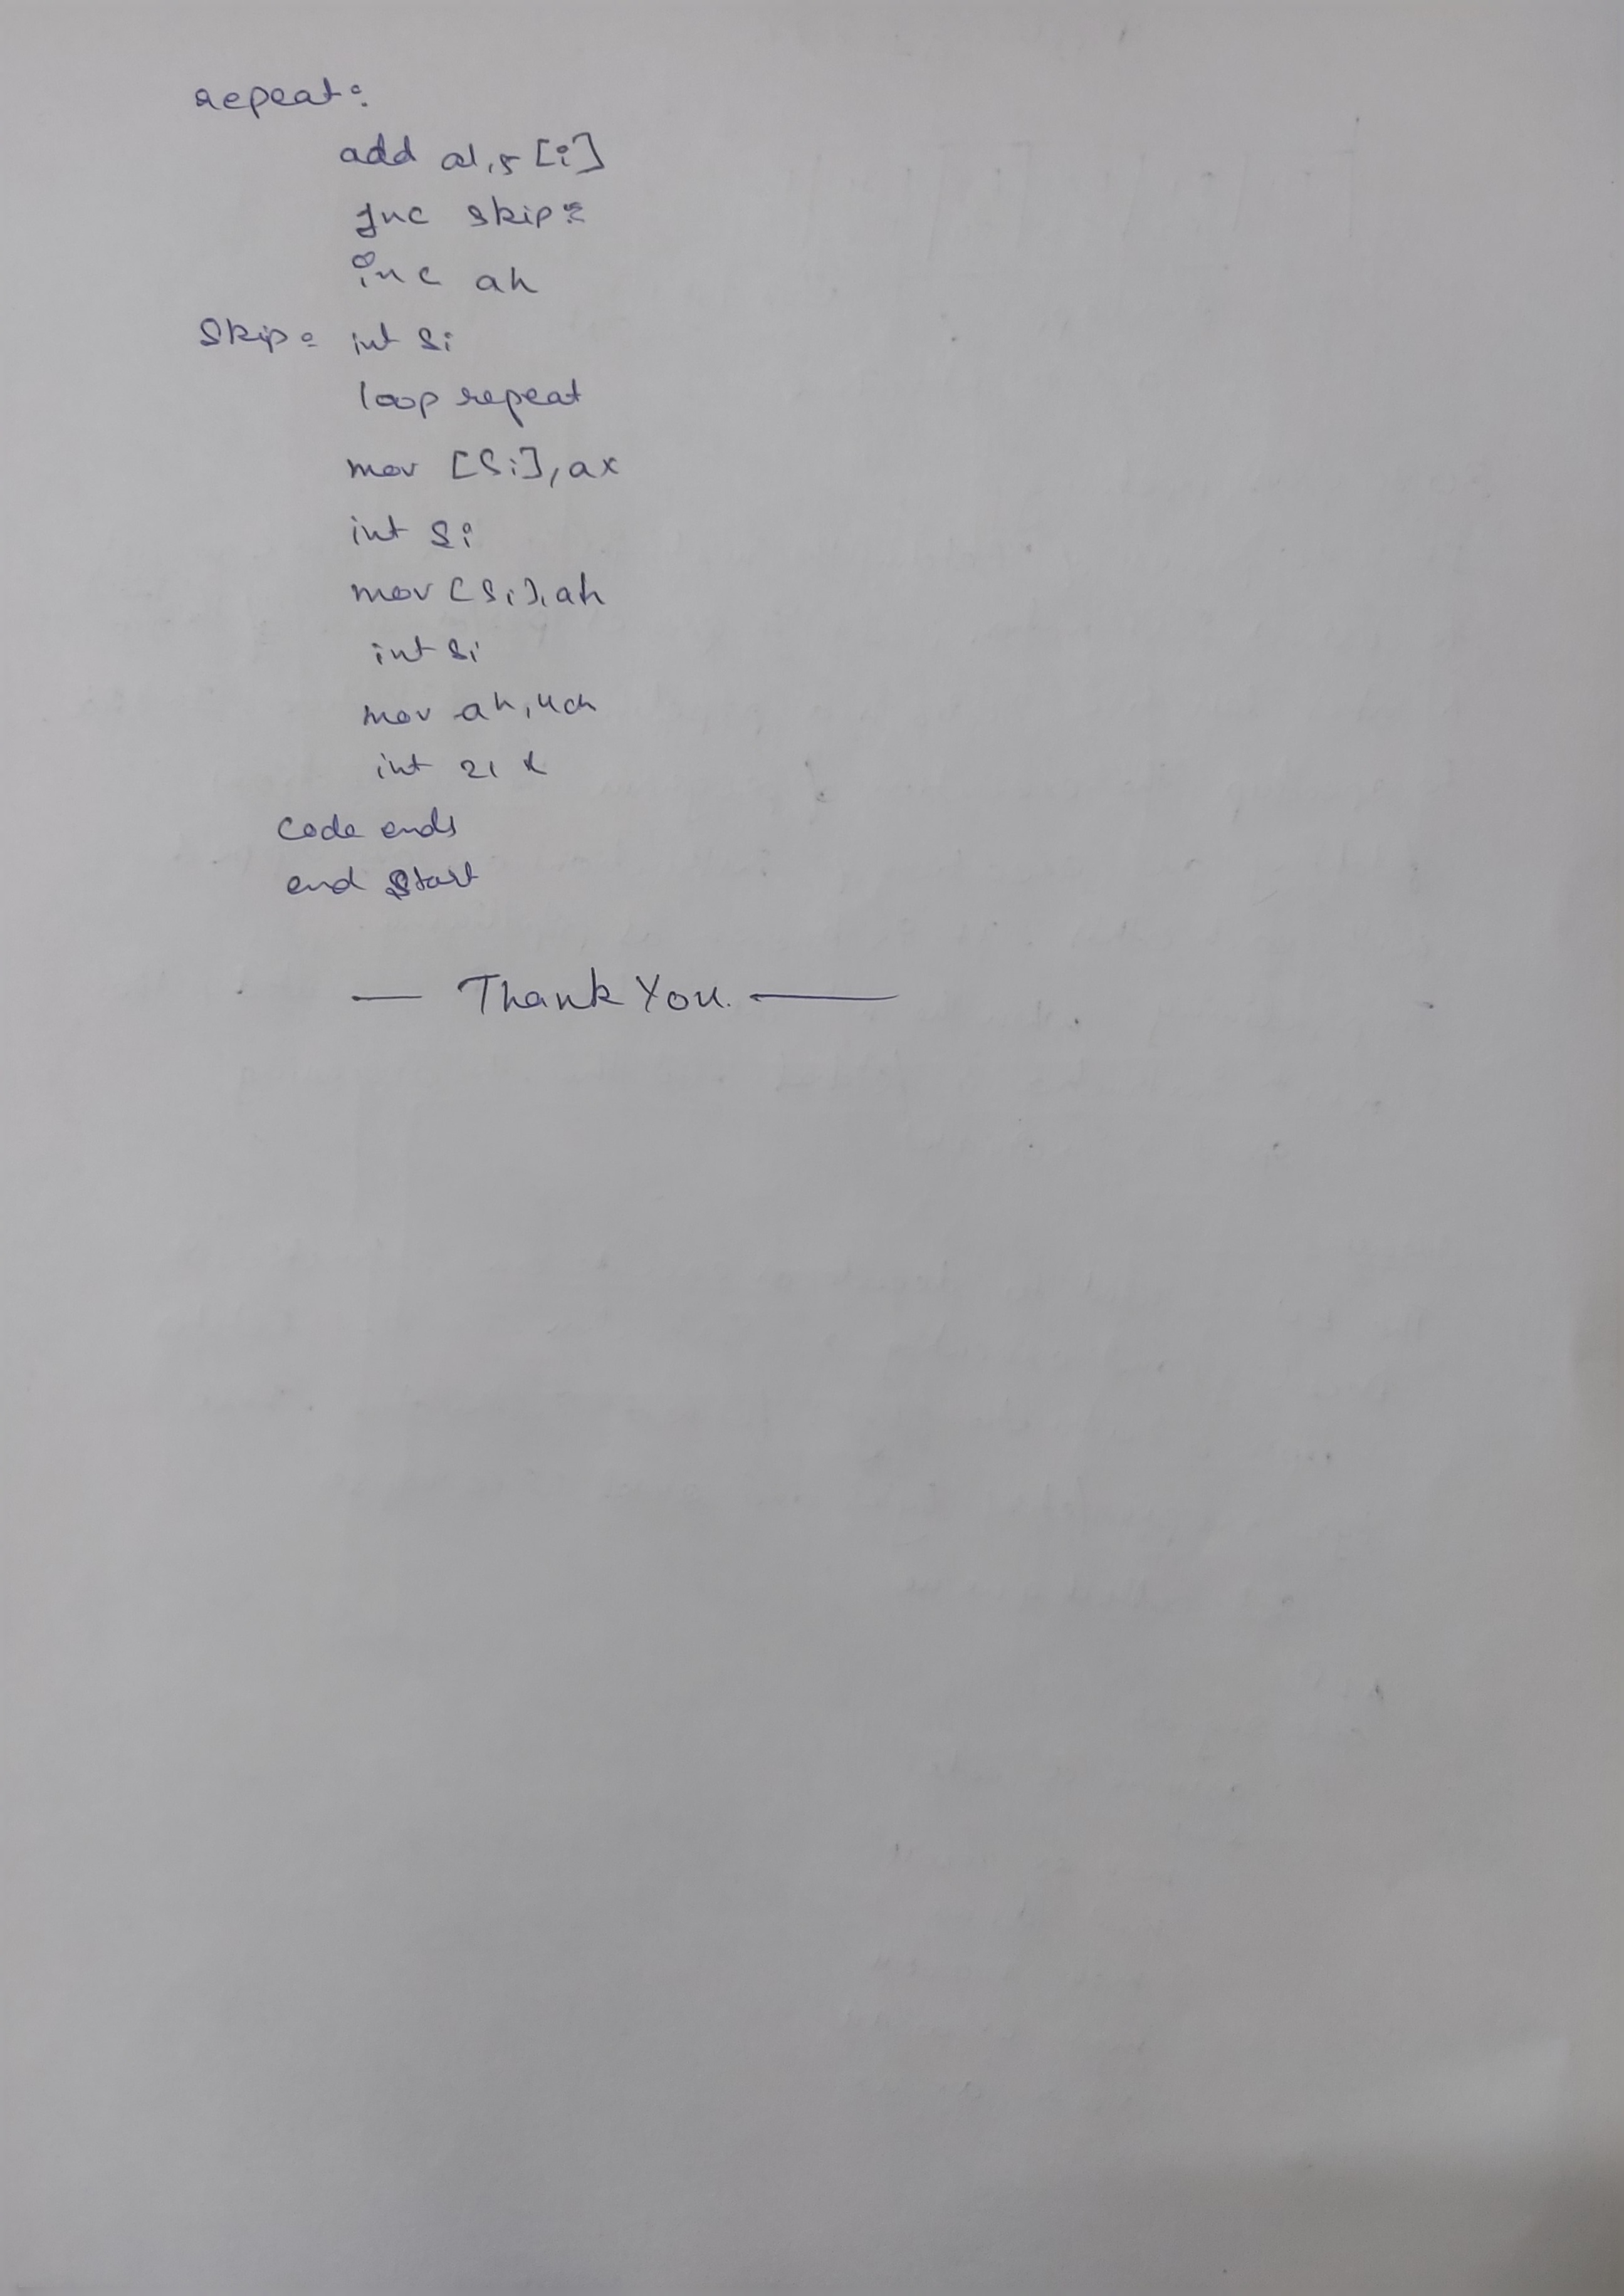 repeat:
add al,s[i]
jnc skip:
inc ah
Skip: int si
loop repeat
mov [Si], ax
int si
mov [Si], ah
int si
mov ah, 4ch
int 21
code ends
end start
— Thank You. —